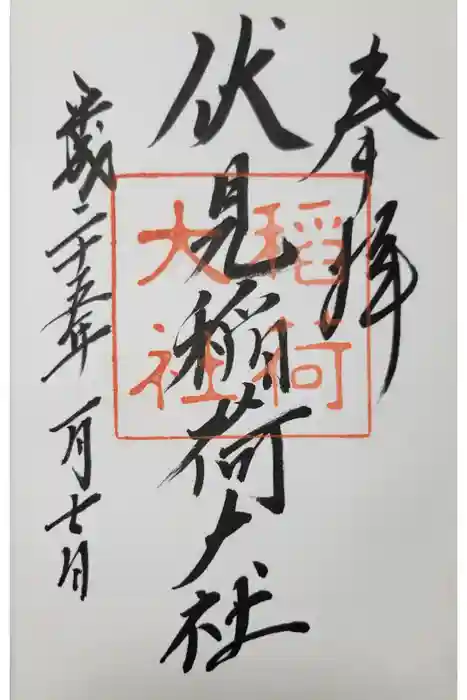 奉拝
伏見稲荷大社
平成二十五年一月七日
稲荷
大社